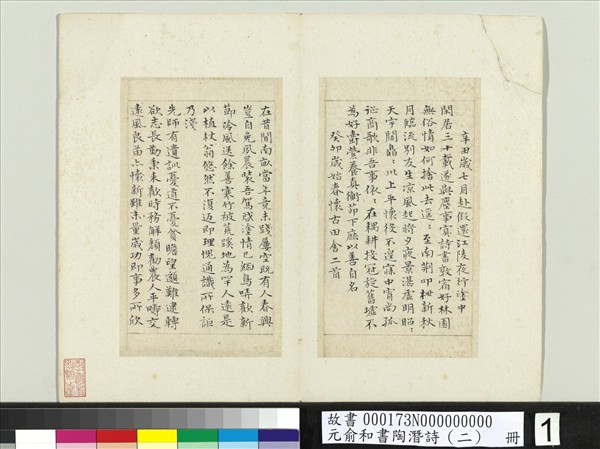 辛丑歲七月赴假還江陵夜行塗中
閑居三十載遂與塵事冥詩書敦宿好林園
無俗情如何捨此去遥〻至南荊叩枻新秋
月臨流別友生涼風起將夕夜景湛虛明昭〻
天宇闊皛〻川上平懷役不遑寐中宵尚孤
征商歌非吾事依〻在耦耕投冠旋舊墟不
為好爵縈養真衡茆下庶以善自名
癸卯歲始春懷古田舍二首
在昔聞南畝當年竟未踐屢空既有人春興
豈自免夙晨裝吾駕啟塗情已緬鳥哢歡新
節泠風送餘善寒竹被荒蹊地為罕人遠是
以植杖翁悠然不復返即理愧通識所保詎
乃淺
先師有遺訓憂道不憂貧瞻望邈難逮轉
欲志長勤秉耒歡時務解顏勸農人平疇交
遠風良苗亦懷新雖未量歲功即事多所欣
故書 000173N000000000
元俞和書陶潛詩(二) 冊
1